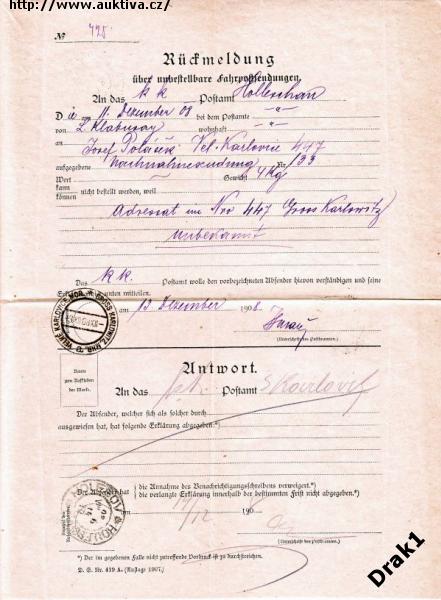 http://www.auktiva.cz/
№ 428
Rückmeldung
über unbestellbare Fahrpostsendungen.
An das k k Postamt Holleschau
Die 11 Dezember 08 bei dem Postamte -"-
von wohnhaft -"-
an Josef Polášek Vel. Karlovic 447
aufgegebene Nachnahmesendung Nr 133
Wert Gewicht 4 Kg
kann
können nicht bestellt werden, weil
Adressat im Nro 447 Gross Karlowitz
unbekannt
Das k k. Postamt wolle den vorbezeichneten Absender hievon verständigen und seine
Erklärung unten mitteilen.
am 13 Dezember 1908.
(Unterschrift des Postbeamten.)
Antwort.
Raum
zum Aufkleben
der Marke.
An das Postamt
Der Absender, welcher sich als solcher durch
ausgewiesen hat, hat folgende Erklärung abgegeben*)
Der Absender hat
die Annahme des Benachrichtigungsschreibens verweigert.*)
die verlangte Erklärung innerhalb der bestimmten Frist nicht abgegeben.*)
190
(Unterschrift des Postbeamten.)
*) Der im gegebenen Falle nicht zutreffende Vordruck ist zu durchstreichen.
D. S. Nr. 419 A. (Auflage 1907.)
Drak1